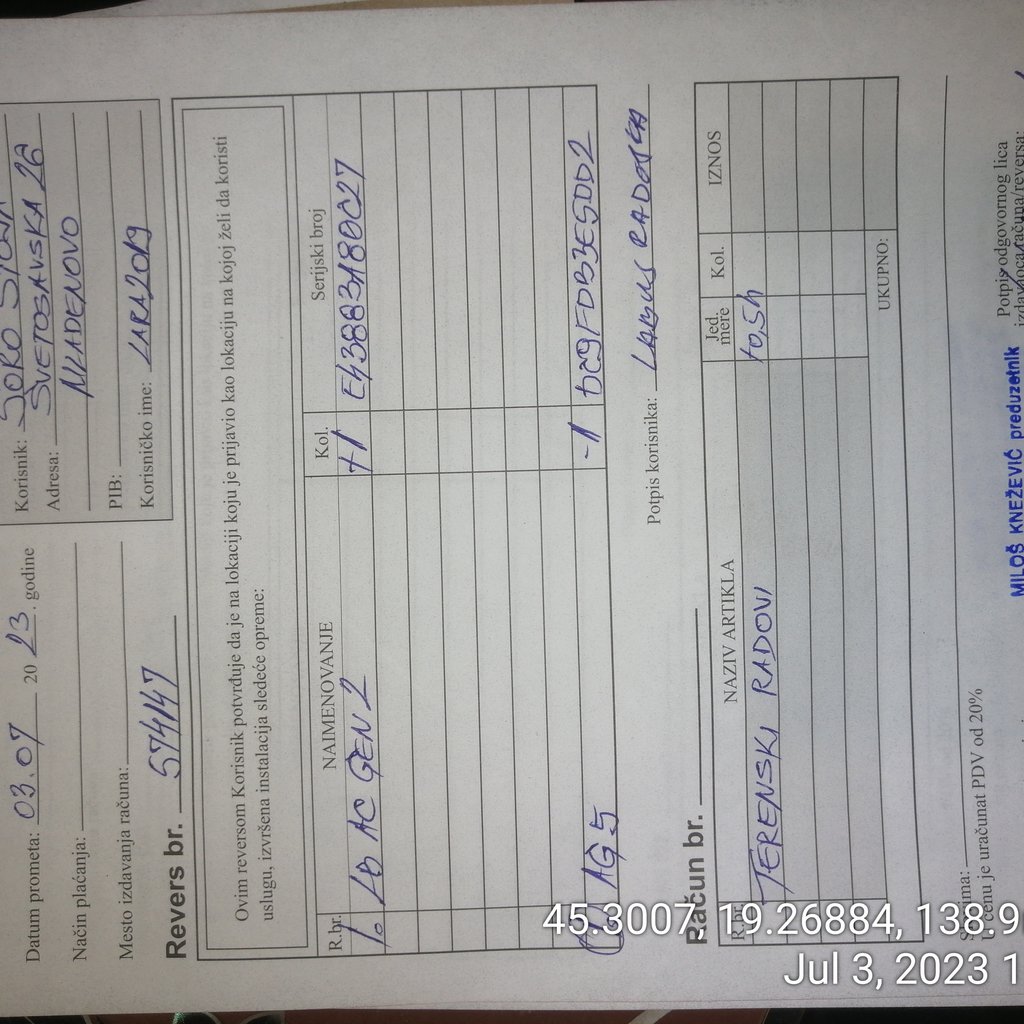 Datum prometa: 03.07 20 23. godine
Način plaćanja:
Mesto izdavanja računa:
Korisnik: ŠOKO
Adresa: SVETOSAVSKA 26
MLADENOVO
PIB:
Korisničko ime: LARA2019
Revers br. 574147
Ovim reversom Korisnik potvrđuje da je na lokaciji koju je prijavio kao lokaciju na kojoj želi da koristi
uslugu, izvršena instalacija sledeće opreme:
R.br. NAIMENOVANJE Kol. Serijski broj
1. LB AC GEN2 +1 E43883A80C27
AG5 -1
Potpis korisnika:
Račun br.
R.br. NAZIV ARTIKLA Jed. mere Kol. IZNOS
TERENSKI RADOVI
UKUPNO:
U cenu je uračunat PDV od 20%
MILOŠ KNEŽEVIĆ preduzetnik
Potpis odgovornog lica
izdavaoca računa/reversa:
45.3007, 19.26884, 138.9
Jul 3, 2023 1